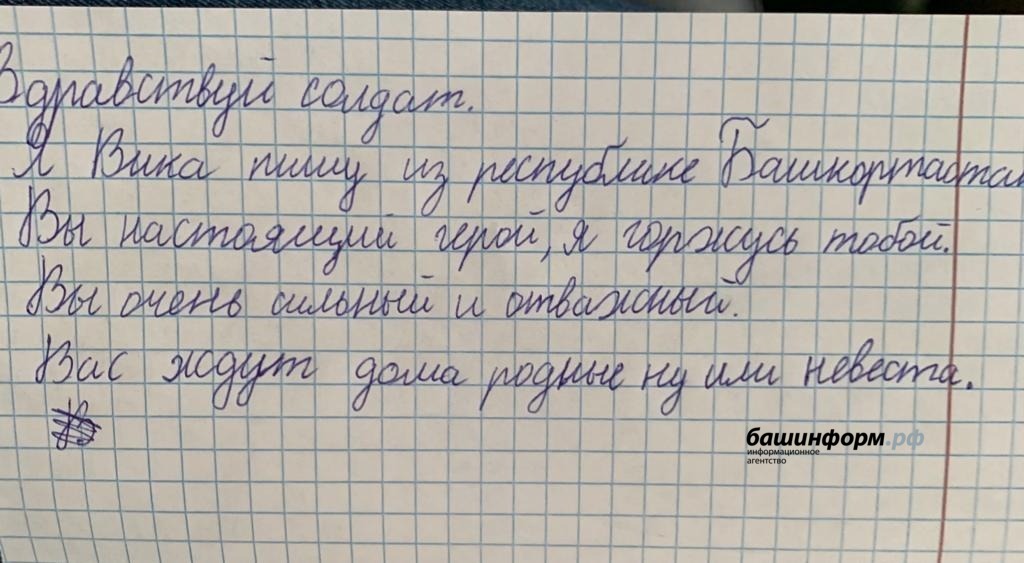 Здравствуй солдат.
Я Вика пишу из республике Башкортастан
Вы настоящий герой, я горжусь тобой.
Вы очень сильный и отважный.
Вас ждут дома родные ну или невеста.
башинформ.рф
информационное
агентство